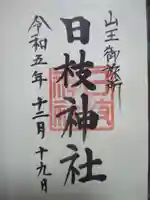 山王御旅所
日枝神社
令和五年十二月十九日